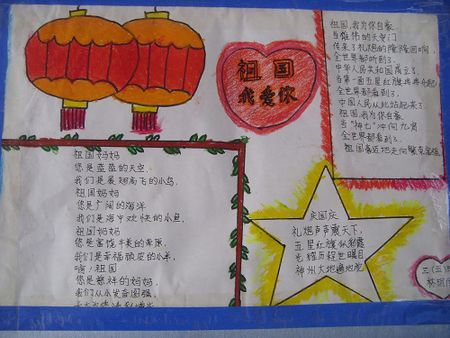 祖国
我爱你
祖国,我为你自豪,
当雄伟的天安门
传来了礼炮的隆隆回响,
全世界都听到了,
中华人民共和国成立了,
当第一面五星红旗冉冉升起,
全世界都看到了,
中国人民从此站起来了。
祖国,我为你自豪,
当"神七"冲向九霄
全世界都看到了,
祖国
祖国妈妈
您是蓝蓝的天空,
我们是展翅高飞的小鸟,
祖国妈妈
您是广阔的海洋
我们是海中欢快的小鱼,
祖国妈妈
您是富饶丰美的
我们是幸福
祖国
您是慈祥的妈妈,
我们从小发奋图强,
庆国庆
礼炮声声震天下,
五星红旗
光辉历程世瞩目
神州大地遍地花
三(三